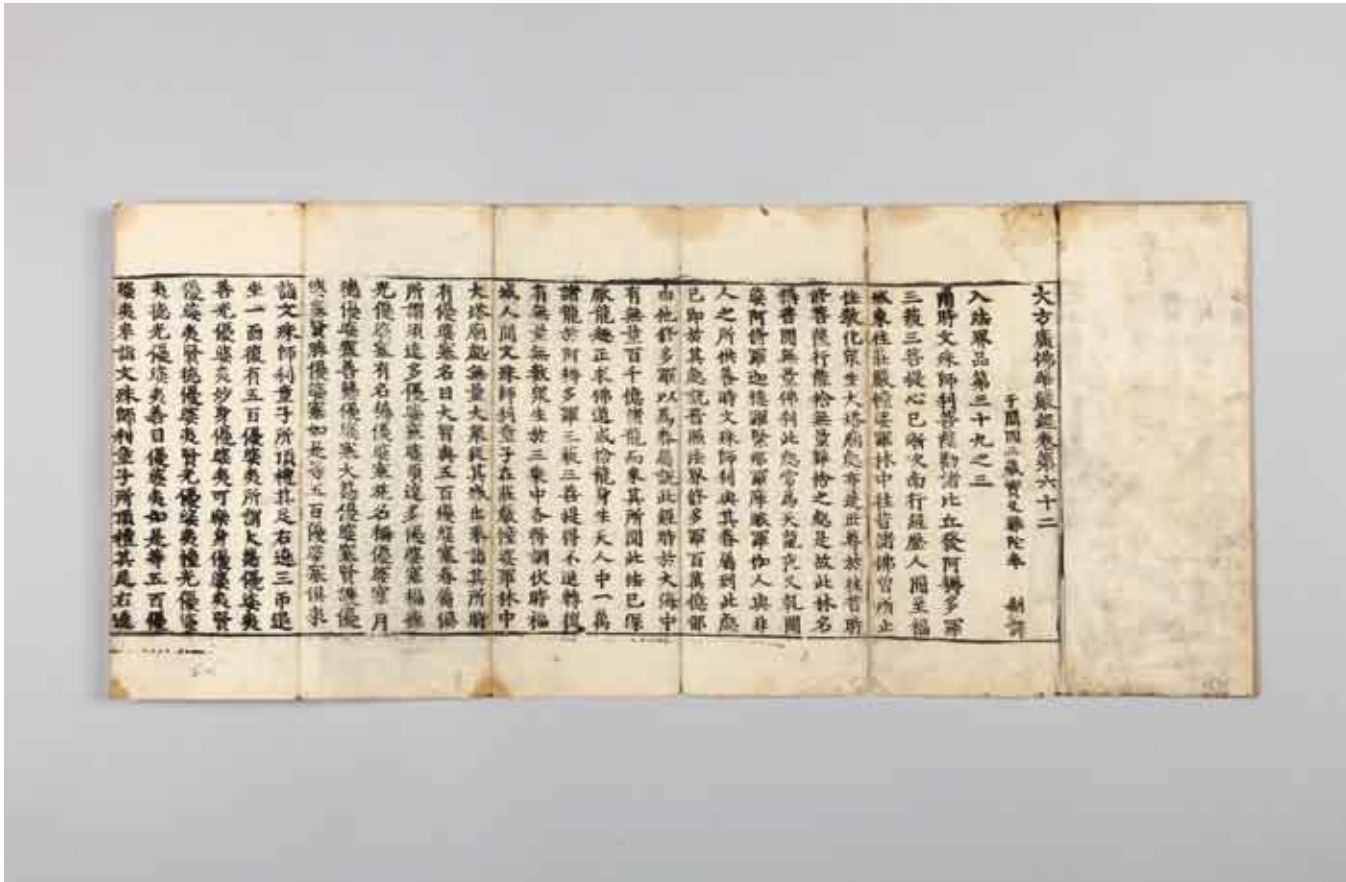 大方廣佛華嚴經卷第六十二
于闐國三藏實叉難陀奉　制譯
入法界品第三十九之三
爾時文殊師利菩薩勸諸比丘發阿耨多羅
三藐三菩提心已漸次南行經歷人間至福
城東住莊嚴幢娑羅林中往昔諸佛曾所止
住教化衆生大塔廟處亦是世尊於往昔時
修菩薩行能捨無量難捨之處是故此林名
稱普聞無量佛刹此處常爲天龍夜叉乾闥
婆阿修羅迦樓羅緊那羅摩睺羅伽人與非
人之所供養時文殊師利與其眷屬到此處
已卽於其處說普照法界修多羅百萬億那
由他修多羅以爲眷屬說此經時於大海中
有無量百千億諸龍而來其所聞此法已深
厭龍趣正求佛道咸捨龍身生天人中一萬
諸龍於阿耨多羅三藐三菩提得不退轉復
有無量無數衆生於三乘中各得調伏時福
城人聞文殊師利童子在莊嚴幢娑羅林中
大塔廟處無量大衆從其城出來詣其所時
有優婆塞名曰大智與五百優婆塞眷屬俱
所謂須達多優婆塞婆須達多優婆塞福德
光優婆塞有名稱優婆塞施名稱優婆塞月
德優婆塞善慧優婆塞大慧優婆塞賢護優
婆塞賢勝優婆塞如是等五百優婆塞俱來
詣文殊師利童子所頂禮其足右遶三帀退
坐一面復有五百優婆夷所謂大慧優婆夷
善光優婆夷妙身優婆夷可樂身優婆夷賢
優婆夷賢德優婆夷賢光優婆夷幢光優婆
夷德光優婆夷善目優婆夷如是等五百優
婆夷來詣文殊師利童子所頂禮其足右遶